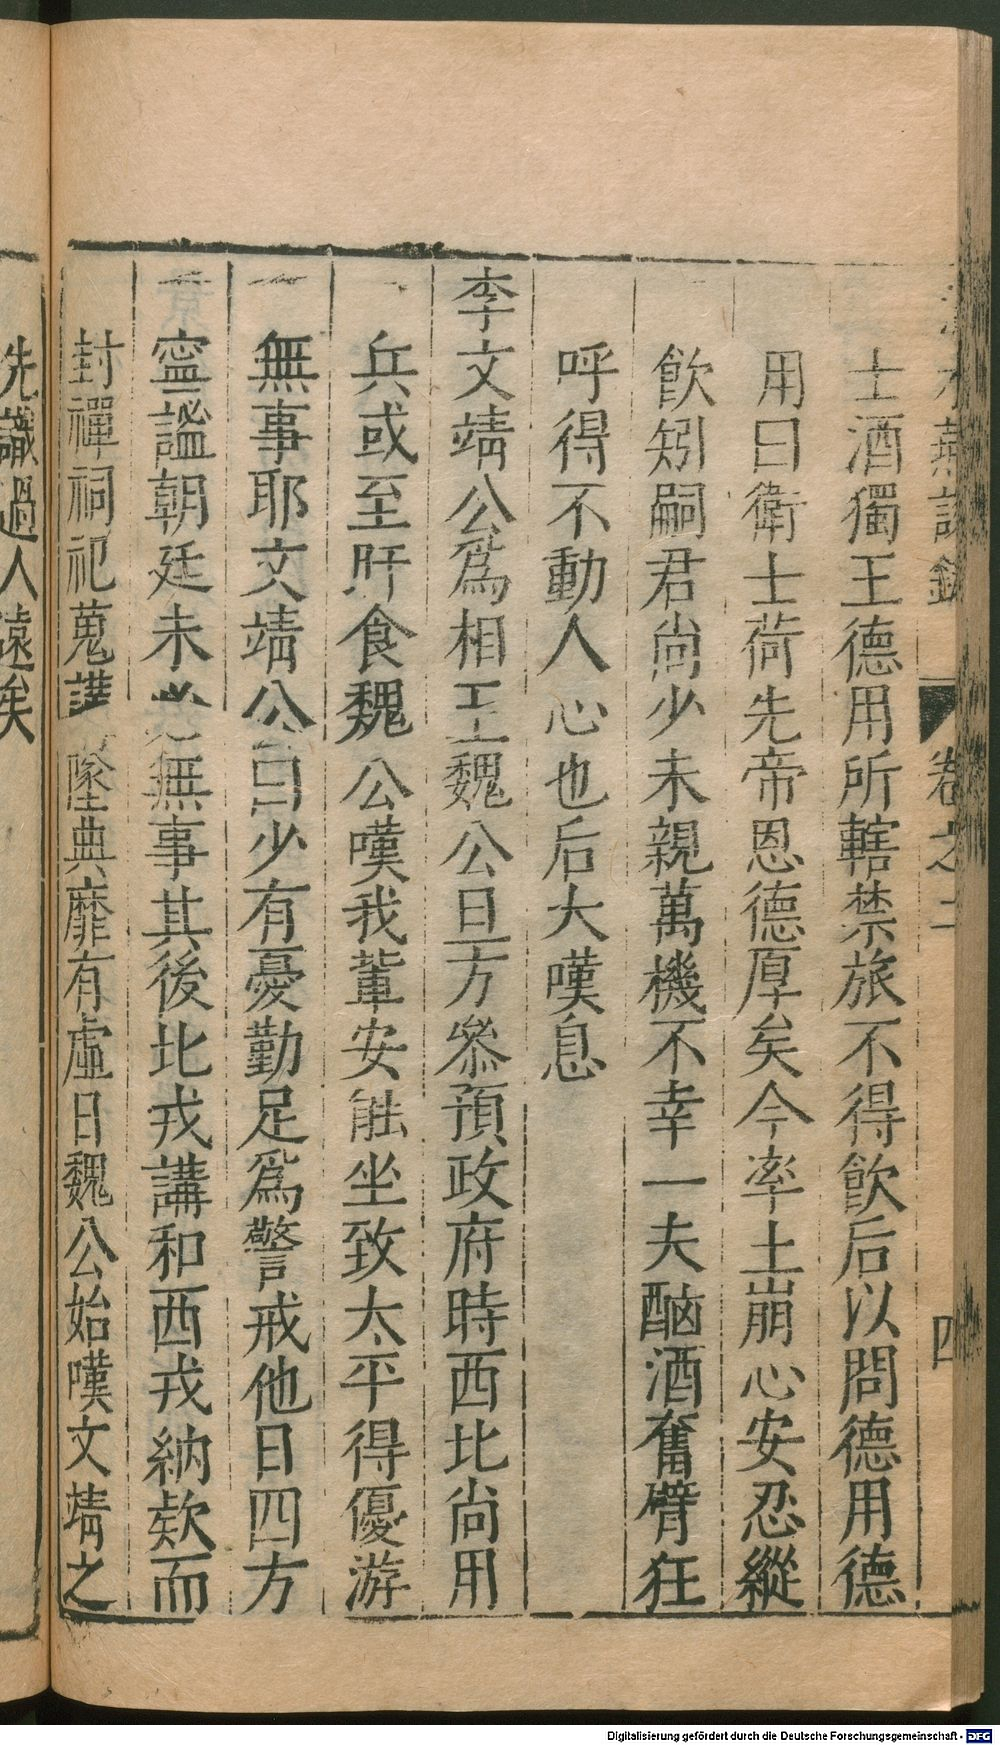 水燕談錄 卷之二 四
士酒獨王德用所轄禁旅不得飲后以問德用德
用曰衛士荷先帝恩德厚矣今率土崩心安忍縱
飲矧嗣君尚少未親萬機不幸一夫酗酒奮臂狂
呼得不動人心也后大嘆息
李文靖公爲相王魏公旦方參預政府時西北尚用
兵或至旰食魏公嘆我輩安能坐致太平得優游
無事耶文靖公曰少有憂勤足爲警戒他日四方
寧謐朝廷未必無事其後北戎講和西戎納欵而
封禪祠祀蒐講墜典靡有虛日魏公始嘆文靖之
先識過人遠矣
Digitalisierung gefördert durch die Deutsche Forschungsgemeinschaft - DFG